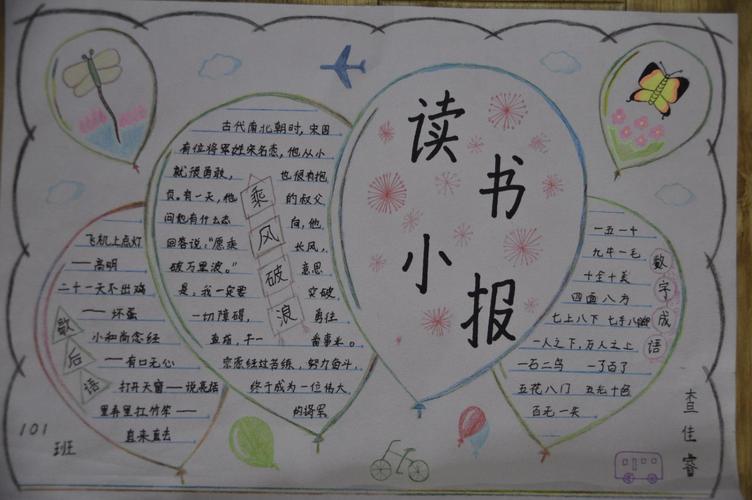 读书小报
古代南北朝时,宋国
有位将军姓宗名悫,他从小
就很勇敢, 也很有抱
负。有一天,他 的叔父
问他有什么志 向,他
回答说:“愿乘 长风,
破万里浪。” 意思
是,我一定要 突破
一切障碍, 勇往
直前,干一 番事业。
宗悫经过苦练,努力奋斗,
终于成为一位伟大
的将军
乘风破浪
飞机上点灯
——高明
二十一天不出鸡
——坏蛋
小和尚念经
——有口无心
打开天窗——说亮话
里弄里扛竹竿——
直来直去
歇后语
一五一十
九牛一毛
十全十美
四面八方
七上八下 七手八脚
一人之下,万人之上
一石二鸟 一了百了
五花八门 五光十色
百无一失
数字成语
101
班
查佳睿